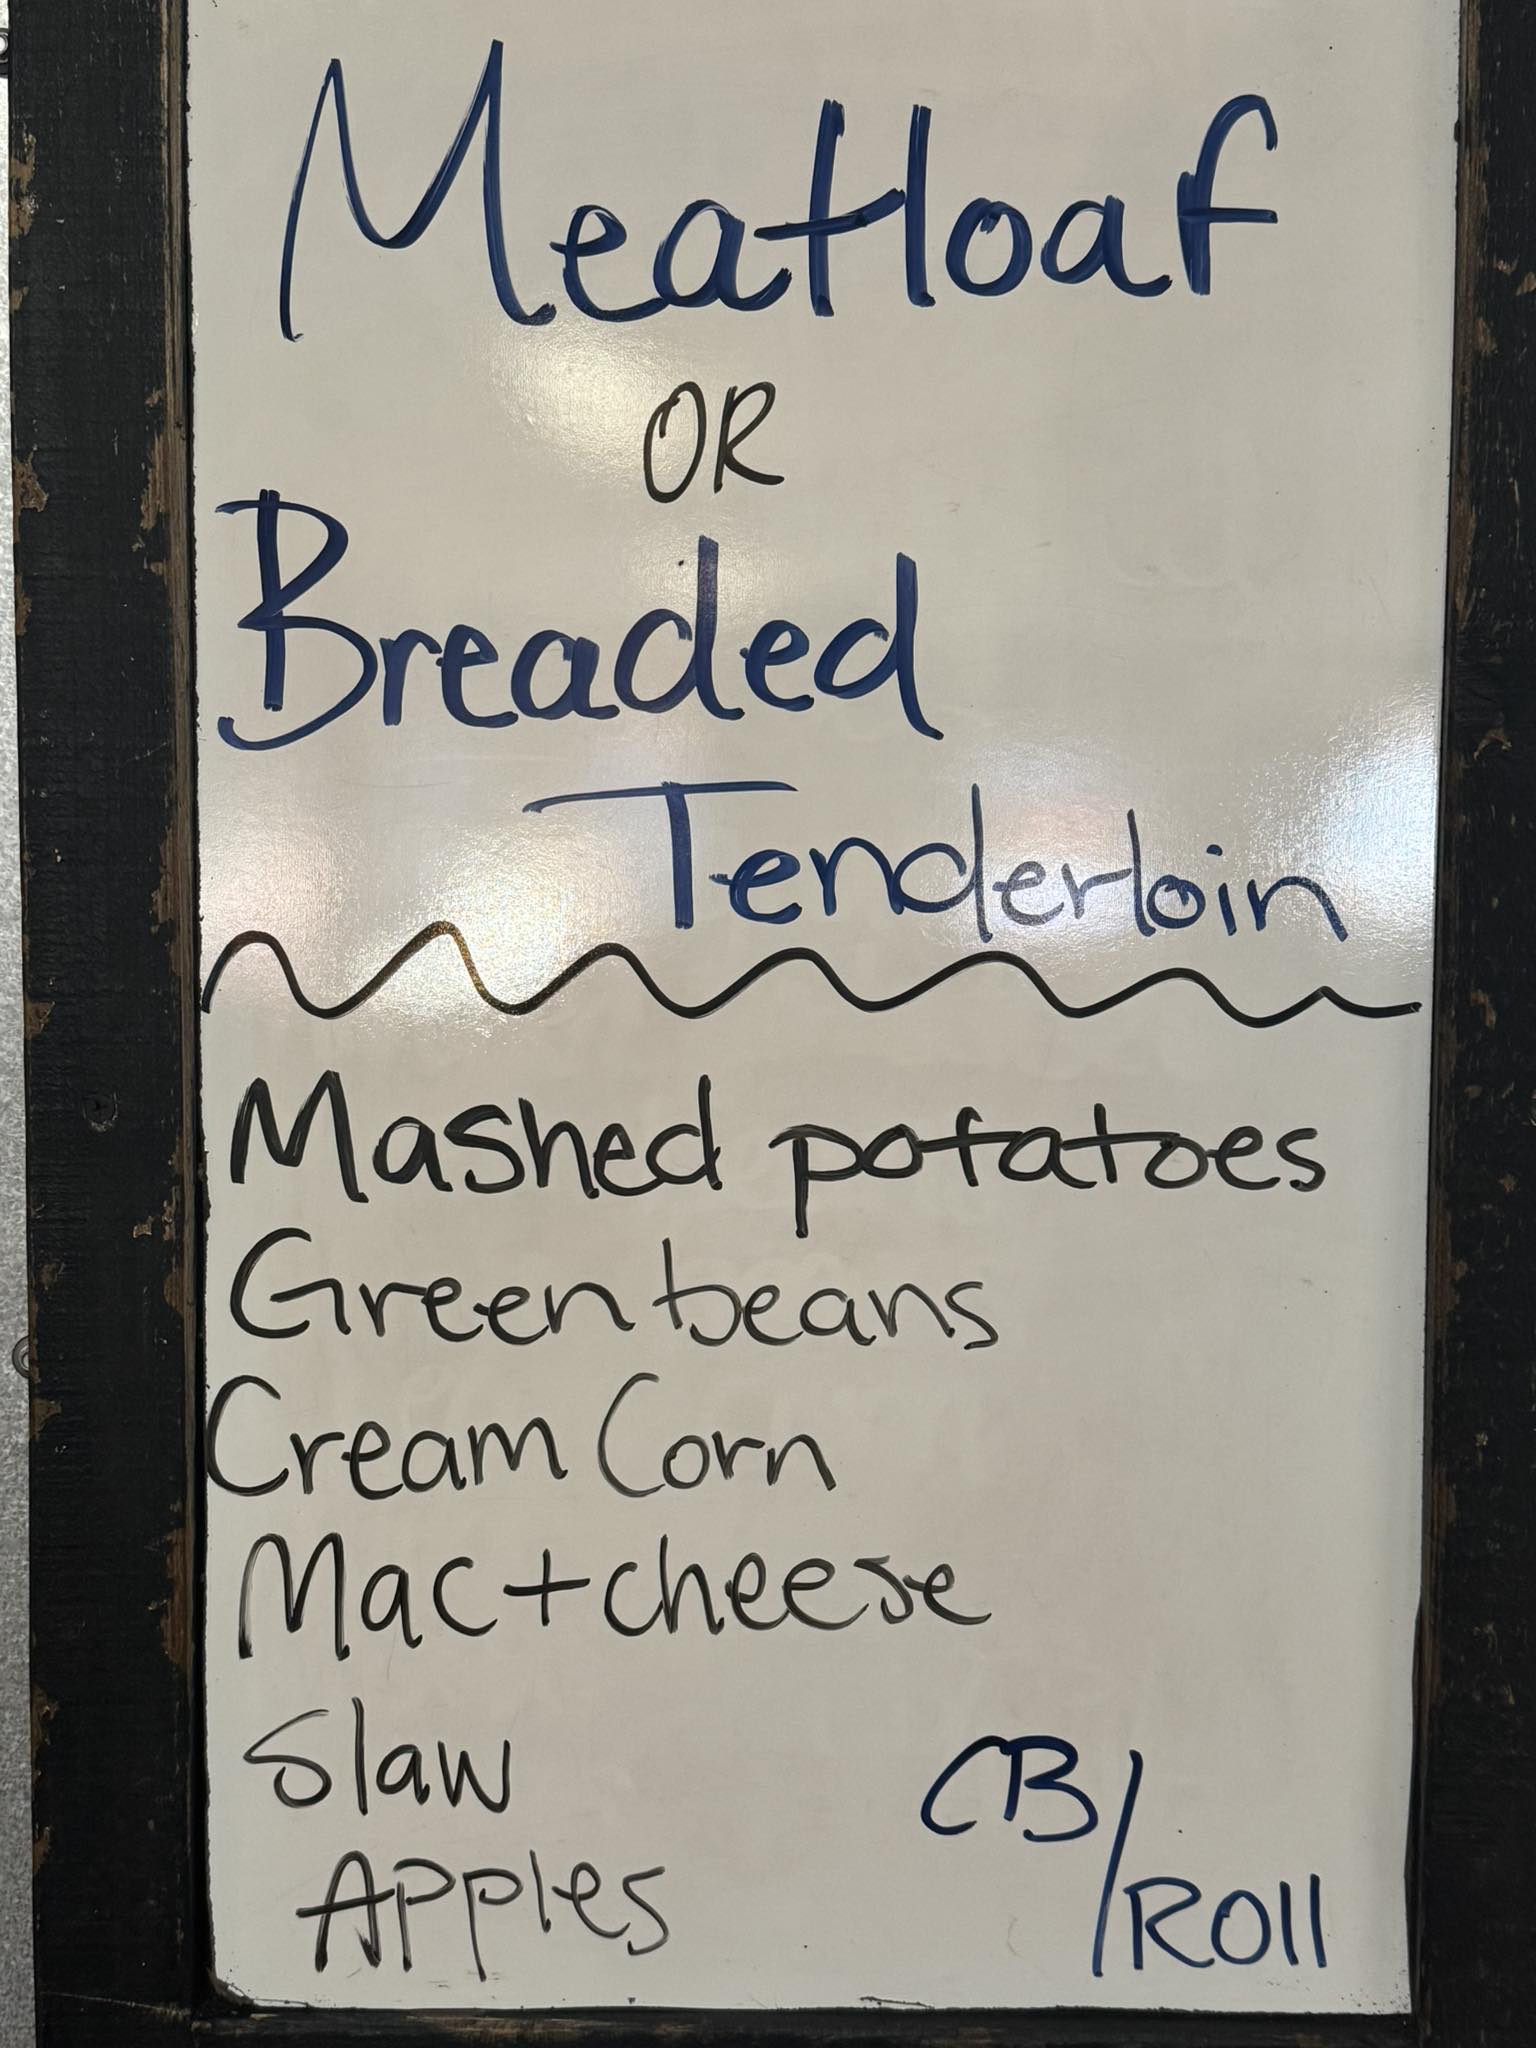 Meatloaf
OR
Breaded
Tenderloin
Mashed potatoes
Green beans
Cream Corn
Mac + cheese
Slaw
Apples
CB/
Roll